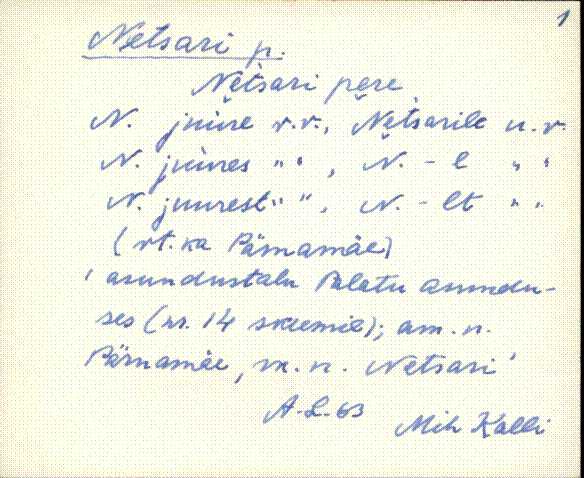 1
Netsari p.
Netsari pere
N. juure v.v., Netsarile u.v.
N. juures " " , N. - l " "
N. juurest " " , N. - lt " "
(vt. ka Pärnamäe)
' asundustalu Palatu asundu-
ses (nr. 14 skeemil); am. n.
Pärnamäe, rk. n. Netsari '
A.L. 63
Mih Kalli